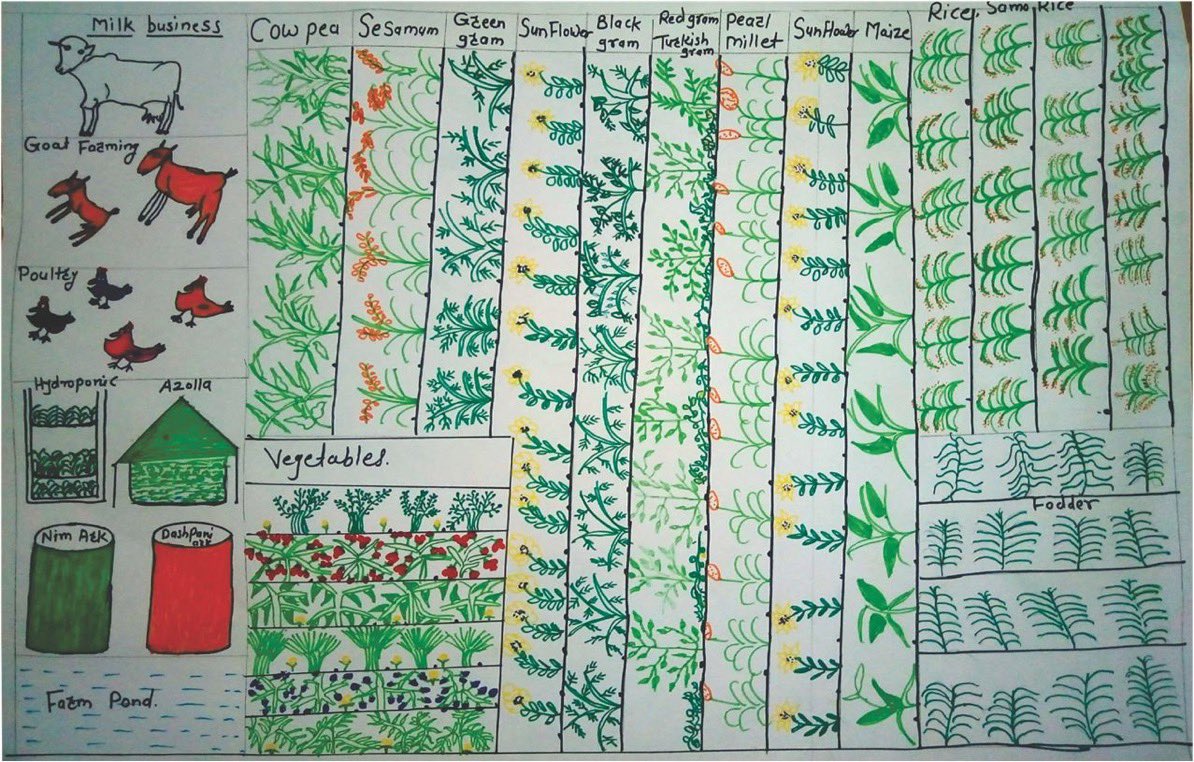 Milk business
Cow pea
Sesamum
Green
gram
SunFlower
Black
gram
Redgram
Turkish
gram
pearl
millet
Sunflower
Maize
Rice, Samo Rice
Goat Farming
Poultry
Hydroponic
Azolla
Vegetables.
Nim Ark
DashParni
ark
Fodder
Farm Pond.